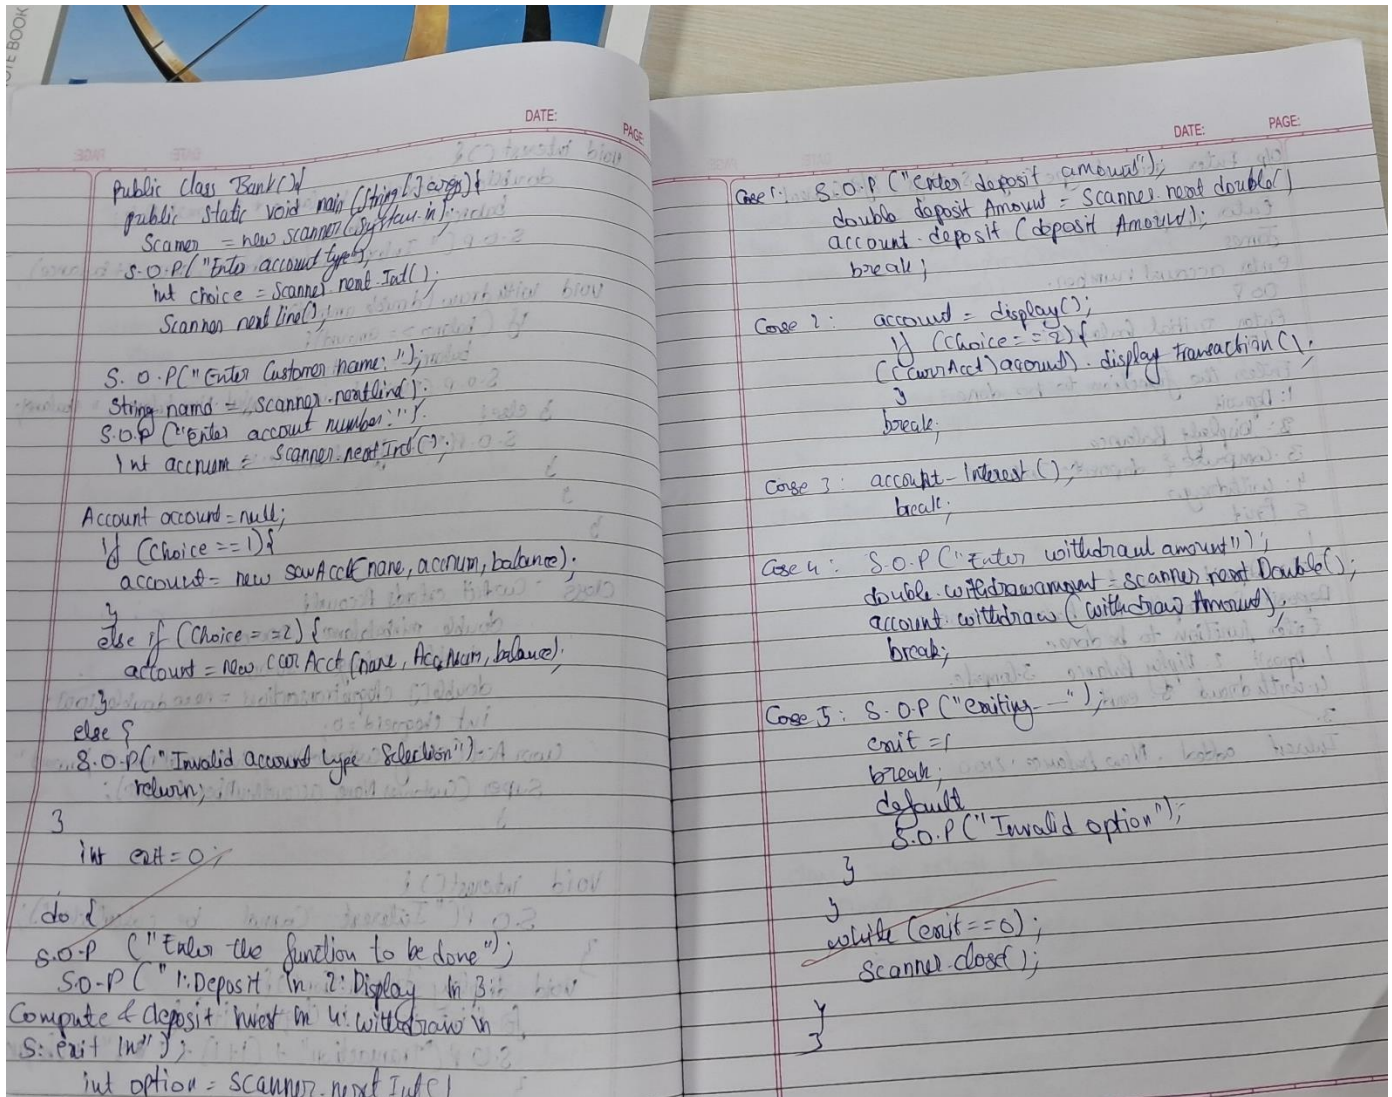 OTE BOOK
DATE:
PAGE
public class Bank(){
public static void main (String[] args){
Scanner = new scanner(System.in);
S.O.P("Enter account type");
int choice = Scanner.next.Int();
Scanner nextline();
S.O.P("Enter Customer name: ");
String name = scanner.nextline();
S.O.P("Enter account number: ")
int accnum = Scanner.nextInt();
Account account = null;
if (choice == 1){
account = new savAcct(name, accnum, balance);
}
else if (choice == 2) {
account = new currAcct (name, AccNum, balance);
}
else {
S.O.P("Invalid account type Selection")
return;
}
int exit = 0;
do {
S.O.P ("Enter the function to be done");
S.O.P (" 1:Deposit \n 2: Display \n 3:
Compute & deposit \n 4: withdraw \n
5: exit \n");
int option = scanner.nextInt()
DATE:
PAGE:
Case 1: S.O.P ("enter deposit amount");
double deposit Amount = Scanner.next double()
account.deposit (deposit Amount);
break;
Case 2: account = display();
if (choice == 2) {
((currAcct) account).display transaction();
}
break;
Case 3: account-Interest();
break;
Case 4: S.O.P ("Enter withdraul amount");
double.withdrawamount = scanner next Double();
account.withdraw (withdraw Amount);
break;
Case 5: S.O.P ("exiting---");
exit = 1
break;
default
S.O.P ("Invalid option");
}
}
while (exit == 0);
scanner.close();
}
}